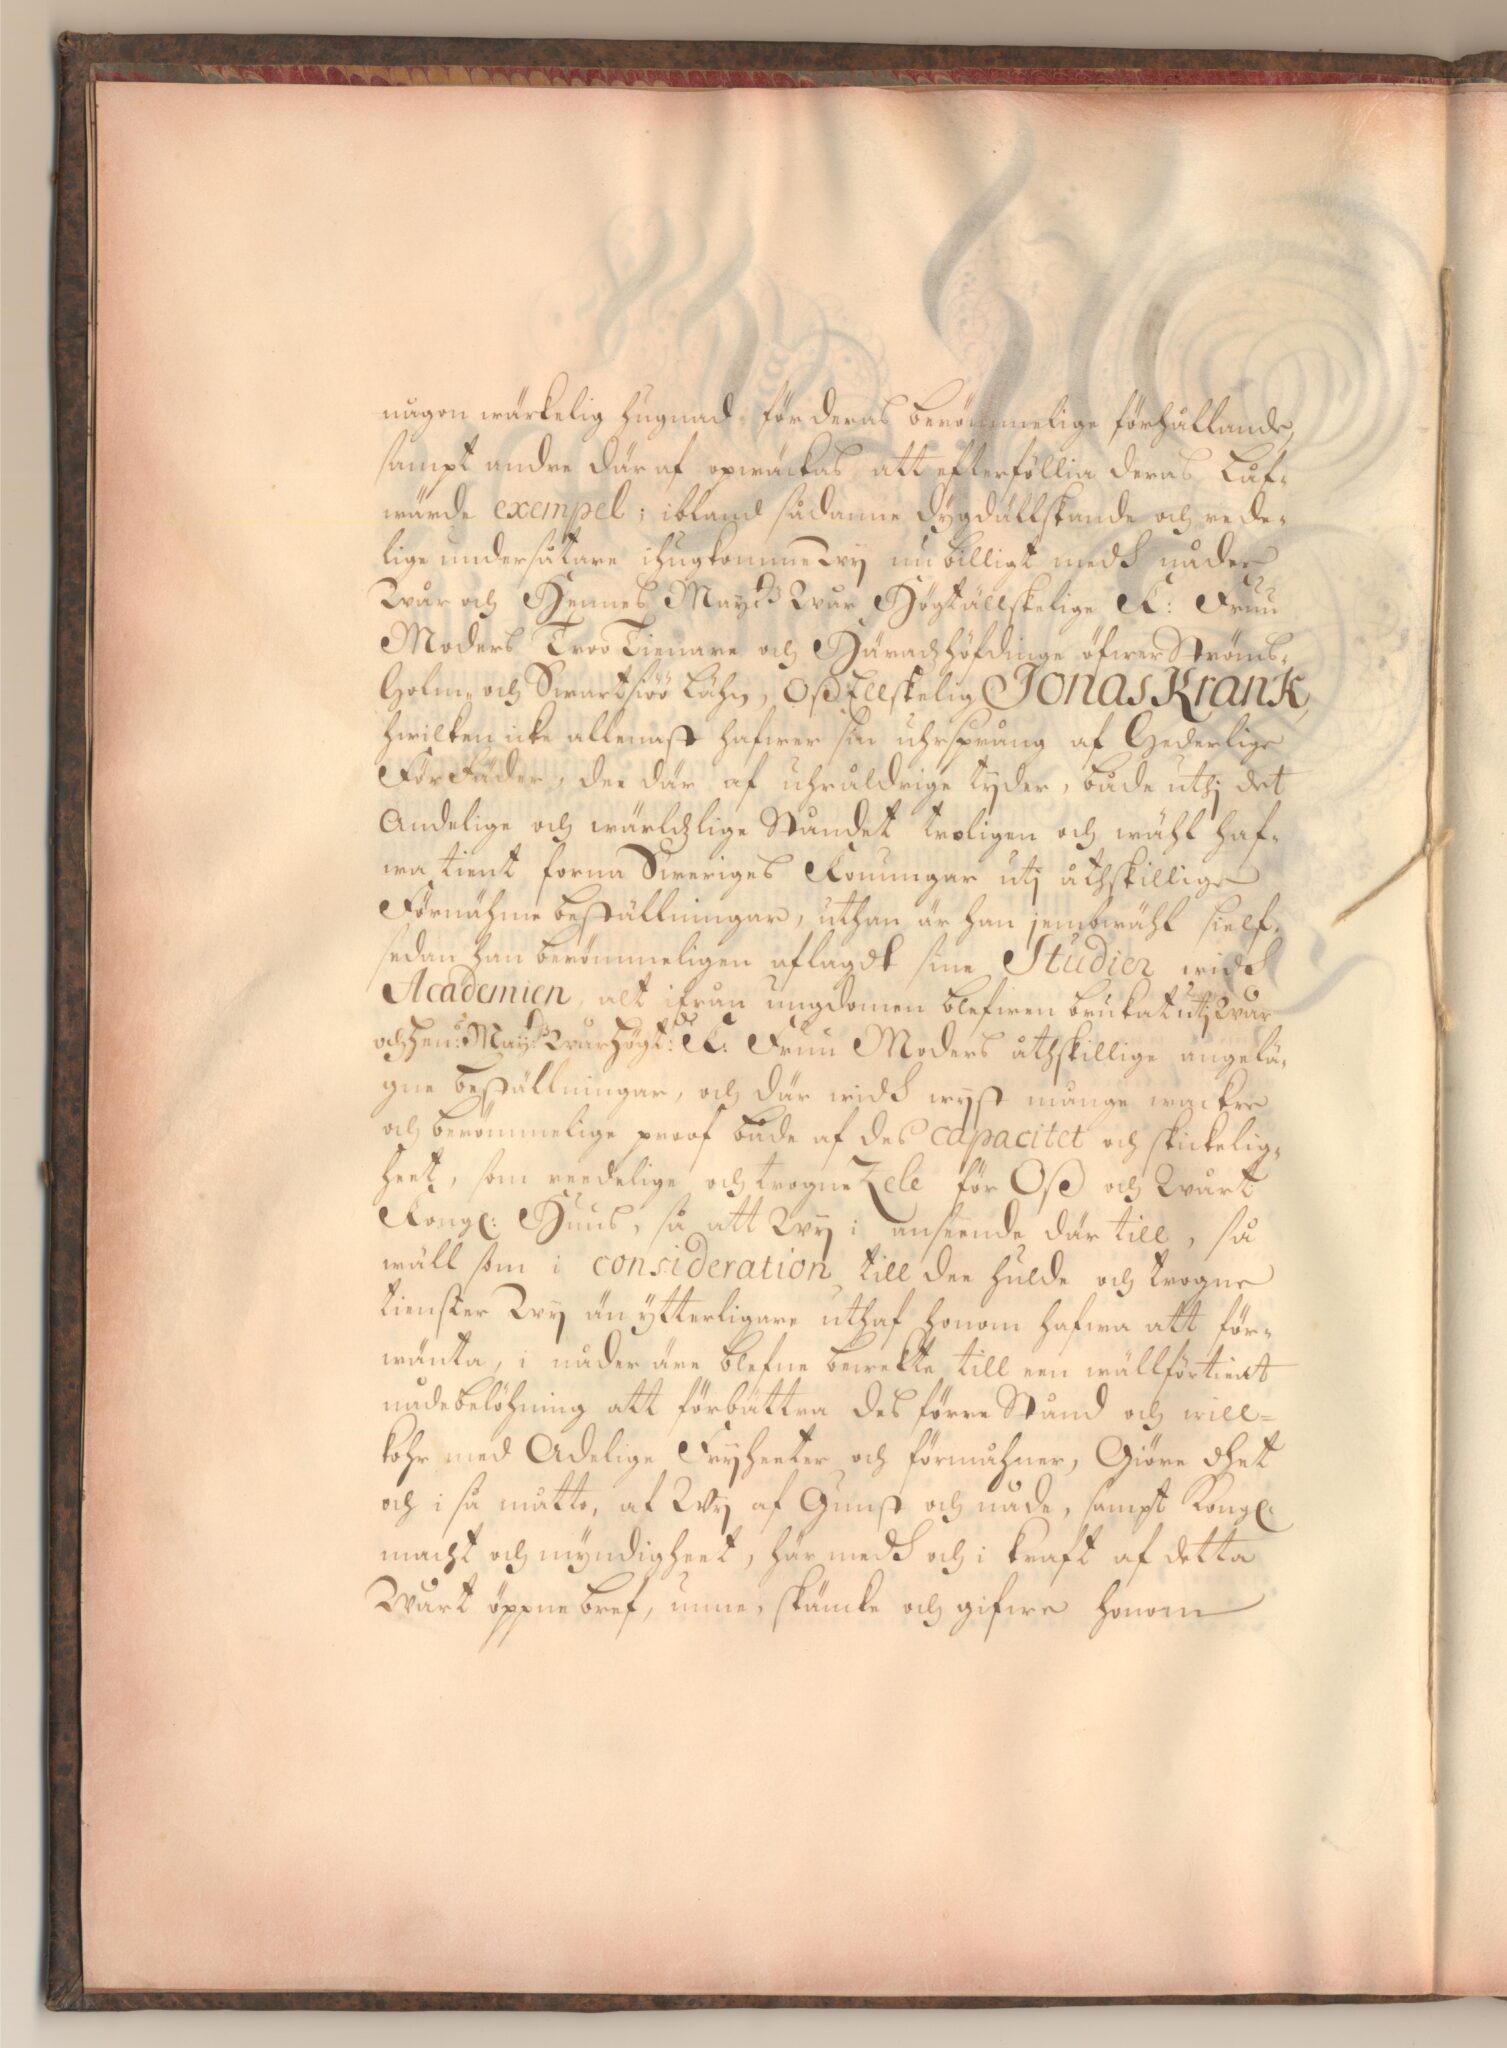 någon wärkelig hugnad för deras berömmelige förhållande,
sampt andre däraf opwäckas att efterföllia deras låf-
wärde exempel; ibland sådanne dygdällskande och rede-
lige undersåtare ihugkomme Wij nu billigt medh nåder
Wår och Hennes May:tz Wår Högtällskelige K: Fruu
Moders Troo Tienare och Häradzhöfdinge öfwer Ströms-
holm och Swartsiöö Lähn, Oß Ellskelig Jonas Krank,
hwilken icke allenast hafwer sin uhrsprung af Hederlige
Förfäder, dee där af uhråldrige tyder, både uthj det
Andelige och wärldzlige Ståndet troligen och wähl haf-
wa tient forna Sweriges Konungar utj åthskillige
Förnähme beställningar, uthan är han jembwähl sielf,
sedan han berömmeligen aflagdt sine Studier widh
Academien, alt ifrån ungdomen blefwen brukat utj Wår
och Hen:s May:tz Wår Högt: K: Fruu Moders åthskillige angelä-
gne beställningar, och där widh wyst många wackre
och berömmelige proof både af des capacitet och skickelig-
heet, som reedelige och trogne Zele för Oß och Wårt
Kongl: Huus, så att Wij i anseende där till, så
wäll som i consideration till dee hulde och trogne
tienster Wij än ytterligare uthaf honom hafwa att för-
wänta, i nåder äre blefne bewekte till een wällförtient
nådebelöhning att förbättra des förre Stånd och will-
kohr med Adelige Fryheeter och förmåhner, Giöre dhet
och i så motto, af Wij af Gunst och nåde, sampt Kongl:
macht och myndigheet, här medh och i kraft af detta
Wårt öppne bref, unne, skäncke och gifwe honom